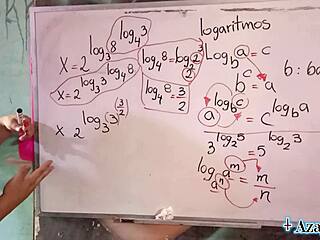 logaritmos
x = 2^{log_3 8^{log_4 3}}
log_4 8 = log_{2^2} 2^3
log_b a = c
b^c = a
b : ba
x = 2^{log_3 3^{log_4 8}}
log_4 8 = 3/2
a^{log_b c} = c^{log_b a}
x 2^{log_3 3^{(3/2)}}
3^{log_2 5} = 5^{log_2 3}
log_{a^n} a^m = m/n
+ Aza